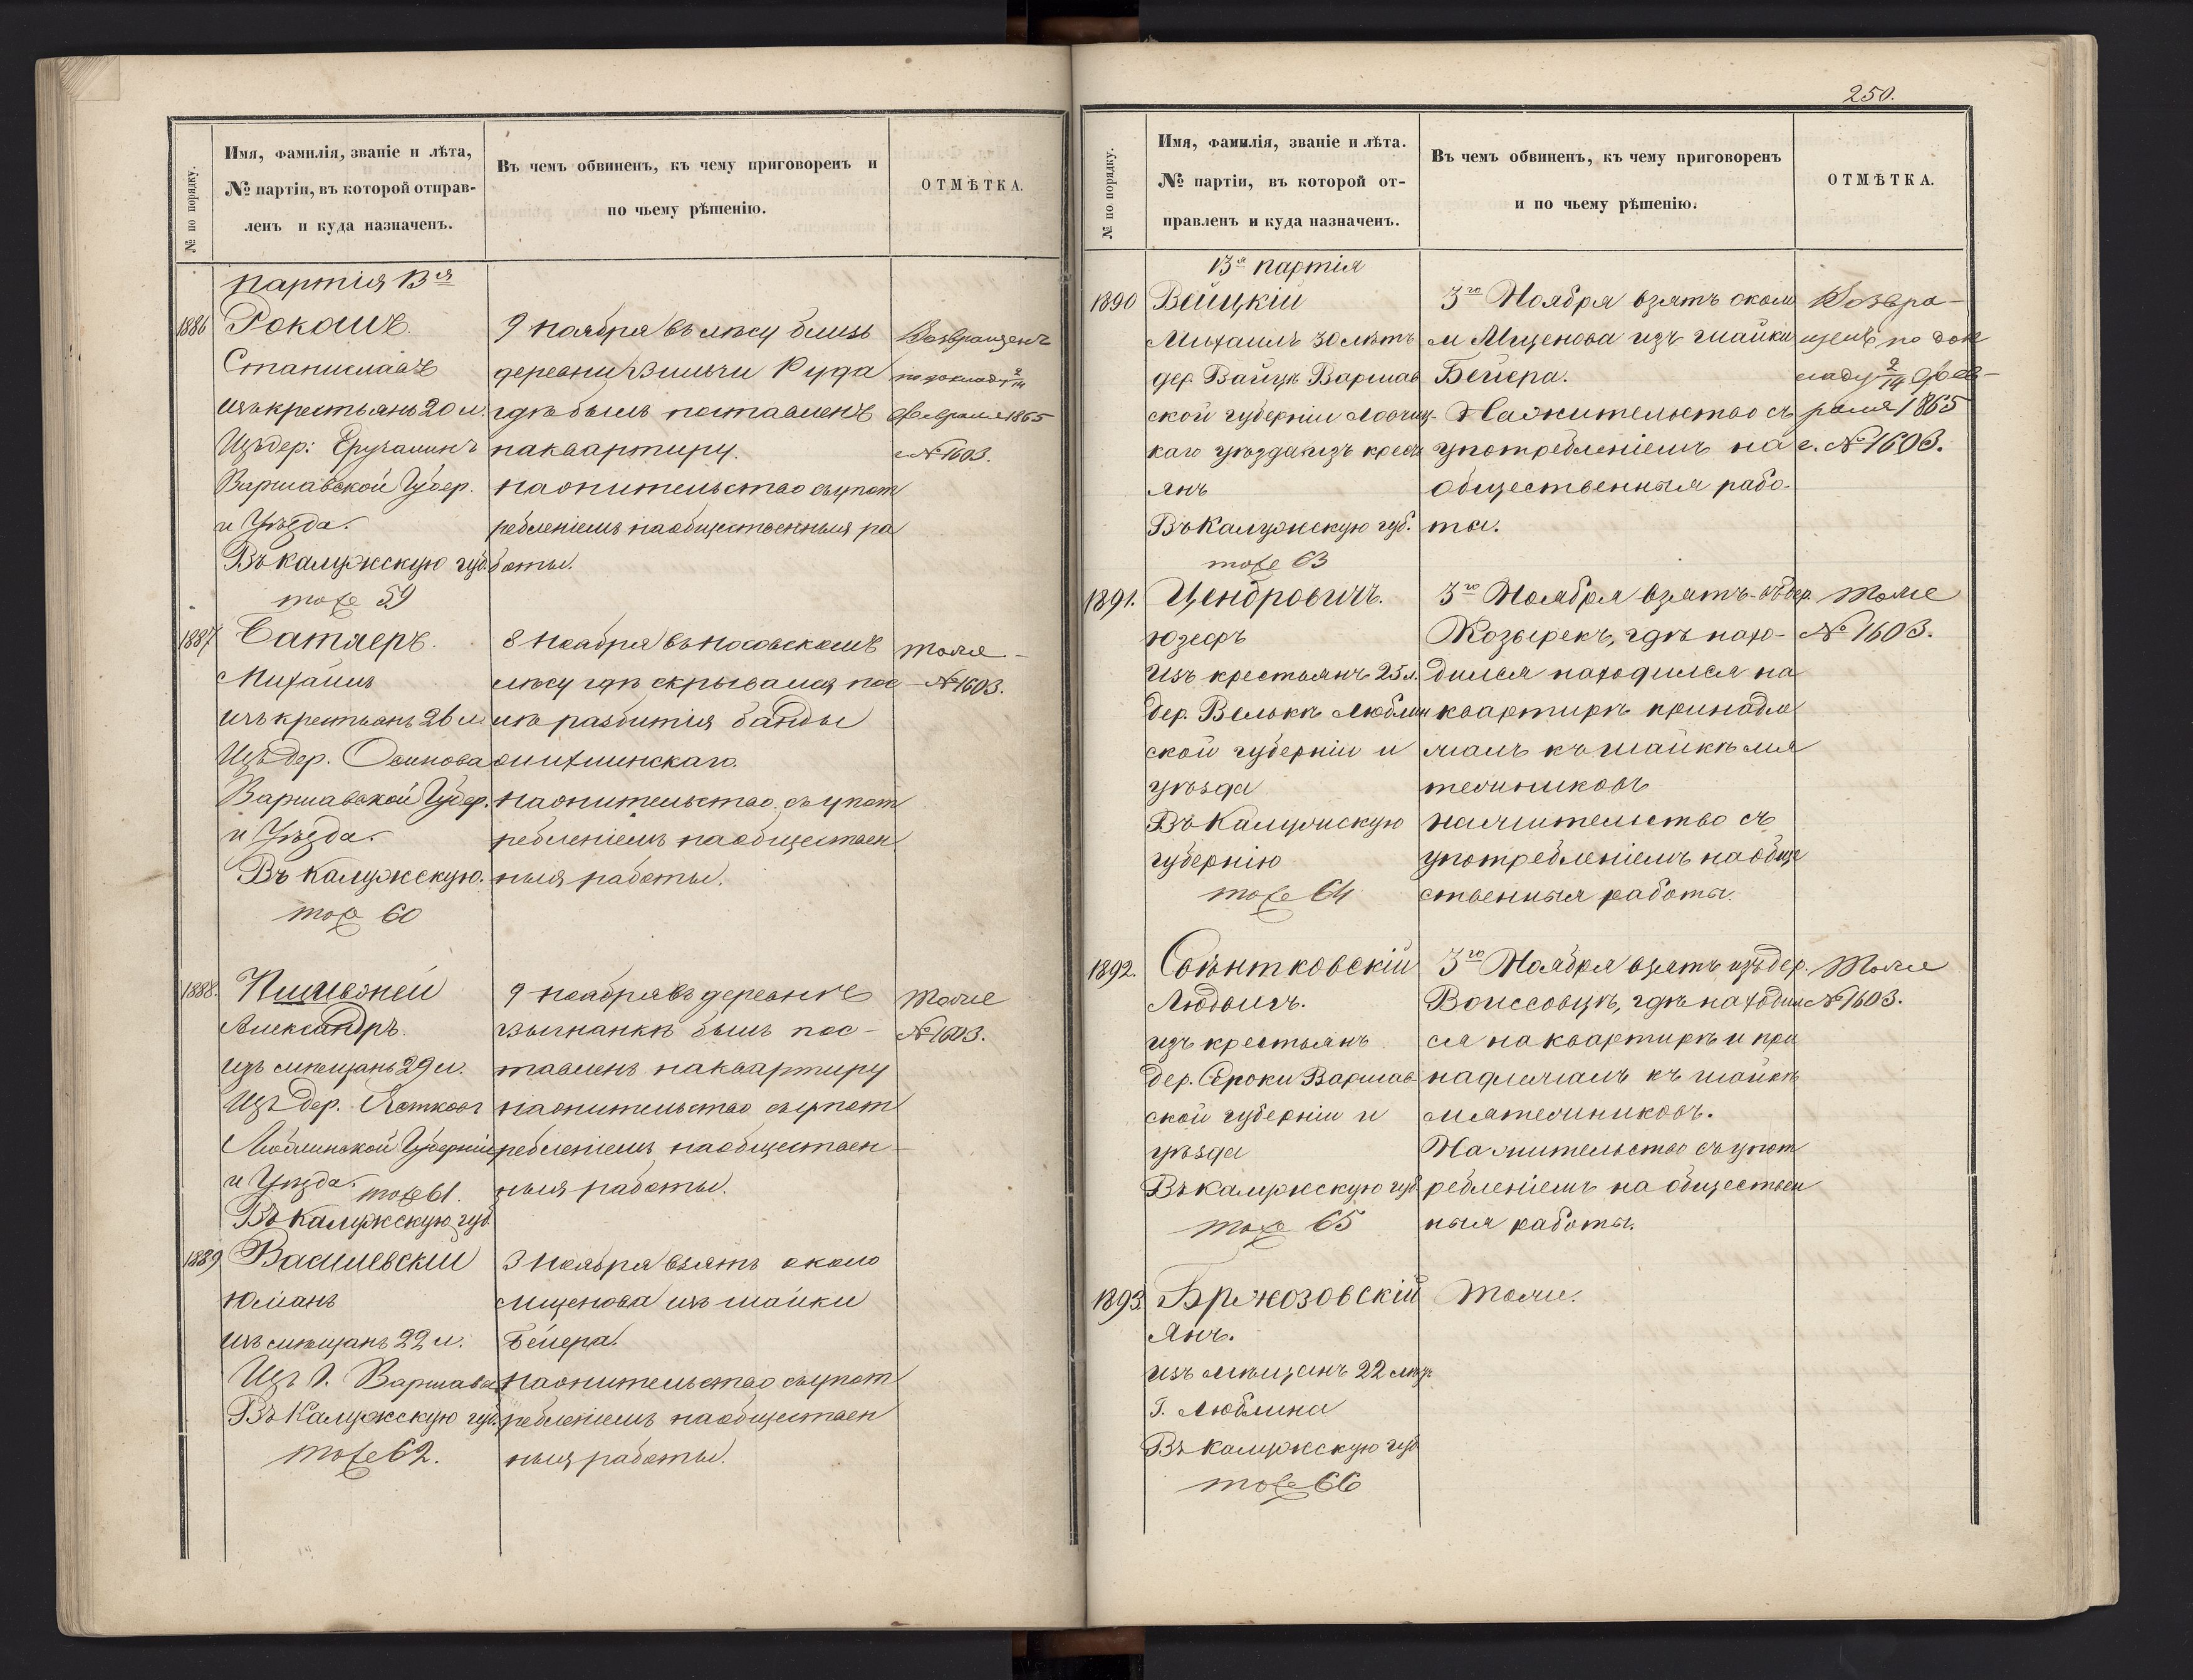 № по порядку.
Имя, фамилія, званіе и лѣта,
№ партіи, въ которой отправ-
ленъ и куда назначенъ.
Въ чемъ обвиненъ, къ чему приговоренъ и
по чьему рѣшенію.
ОТМѢТКА.
партія 13ая
1886
Рокошъ.
Станиславъ
изъ крестьянъ 20 л.
Изъ дер:
Варшавской Губер.
и Уѣзда.
Въ калужскую губ.
тоже 59
9 ноября въ лѣсу близь
деревни Вильги Руда
гдѣ былъ поставленъ
на квартиру.
на жительство съ упот
ребленіемъ на общественныя ра
боты.
Возвращенъ
по докладу 2/14
Февраля 1865
г. № 1603.
1887
Сатлеръ.
Михаилъ
изъ крестьянъ 26 л.
Изъ дер. Осинова
Варшавской Губер.
и Уѣзда.
Въ калужскую.
тоже 60
8 ноября въ Носовскомъ
лѣсу гдѣ скрывался пос
лѣ разбитія банды
на жительство съ упот
ребленіемъ на обществен
ныя работы.
тоже
№ 1603.
1888.
Александръ.
изъ мѣщанъ 29 л.
Изъ дер.
Люблинской Губерніи
и Уѣзда. тоже 61.
Въ Калужскую губ.
9 ноября въ деревнѣ
Выгнанкѣ былъ пос-
тавленъ на квартиру
на жительство съ упот
ребленіемъ на обществен-
ныя работы.
тоже
№ 1603.
1889
Василевскій
Юліанъ
изъ мѣщанъ 22 л.
Изъ Г. Варшавы
Въ Калужскую губ.
тоже 62.
3 ноября взятъ около
Мщенова изъ шайки
Бейера.
на жительство съ упот
ребленіемъ на обществен
ныя работы.
250.
№ по порядку.
Имя, фамилія, званіе и лѣта.
№ партіи, въ которой от-
правленъ и куда назначенъ.
Въ чемъ обвиненъ, къ чему приговоренъ
и по чьему рѣшенію.
ОТМѢТКА.
13я партія
1890
Войцкій
Михаилъ 30 лѣтъ
дер. Варшав
ской губерніи Ловиц-
каго уѣзда изъ кресть
янъ
Въ Калужскую губ.
тоже 63
3го Ноября взятъ около
м Мщенова изъ шайки
Бейера.
На жительство съ
употребленіемъ на
общественныя рабо-
ты.
Возвра-
щенъ по док
ладу 2/14 Фев-
раля 1865
г. № 1603.
1891.
Цендровичъ.
Юзефъ
изъ крестьянъ 25 л.
дер. Люблин
ской губерніи и
уѣзда
Въ Калужскую
губернію
тоже 64
3го Ноября взятъ въ дер.
Козырекъ, гдѣ нахо-
дился находился на
квартирѣ принадле
жалъ къ шайкѣ мя
тежниковъ
на жительство съ
употребленіемъ на обще
ственныя работы.
тоже
№ 1603.
1892.
Свѣнтковскій
Людвигъ.
изъ крестьянъ
дер. Сероки Варшав-
ской губерніи и
уѣзда
Въ калужскую губ.
тоже 65
3го Ноября взятъ изъ дер.
гдѣ находил
ся на квартирѣ и при
надлежалъ къ шайкѣ
мятежниковъ.
На жительство съ упот
ребленіемъ на обществен
ныя работы.
тоже
№ 1603.
1893.
Бржозовскій
Янъ.
изъ мѣщанъ 22 лѣтъ
Г. Люблина
Въ калужскую губ
тоже 66
тоже.